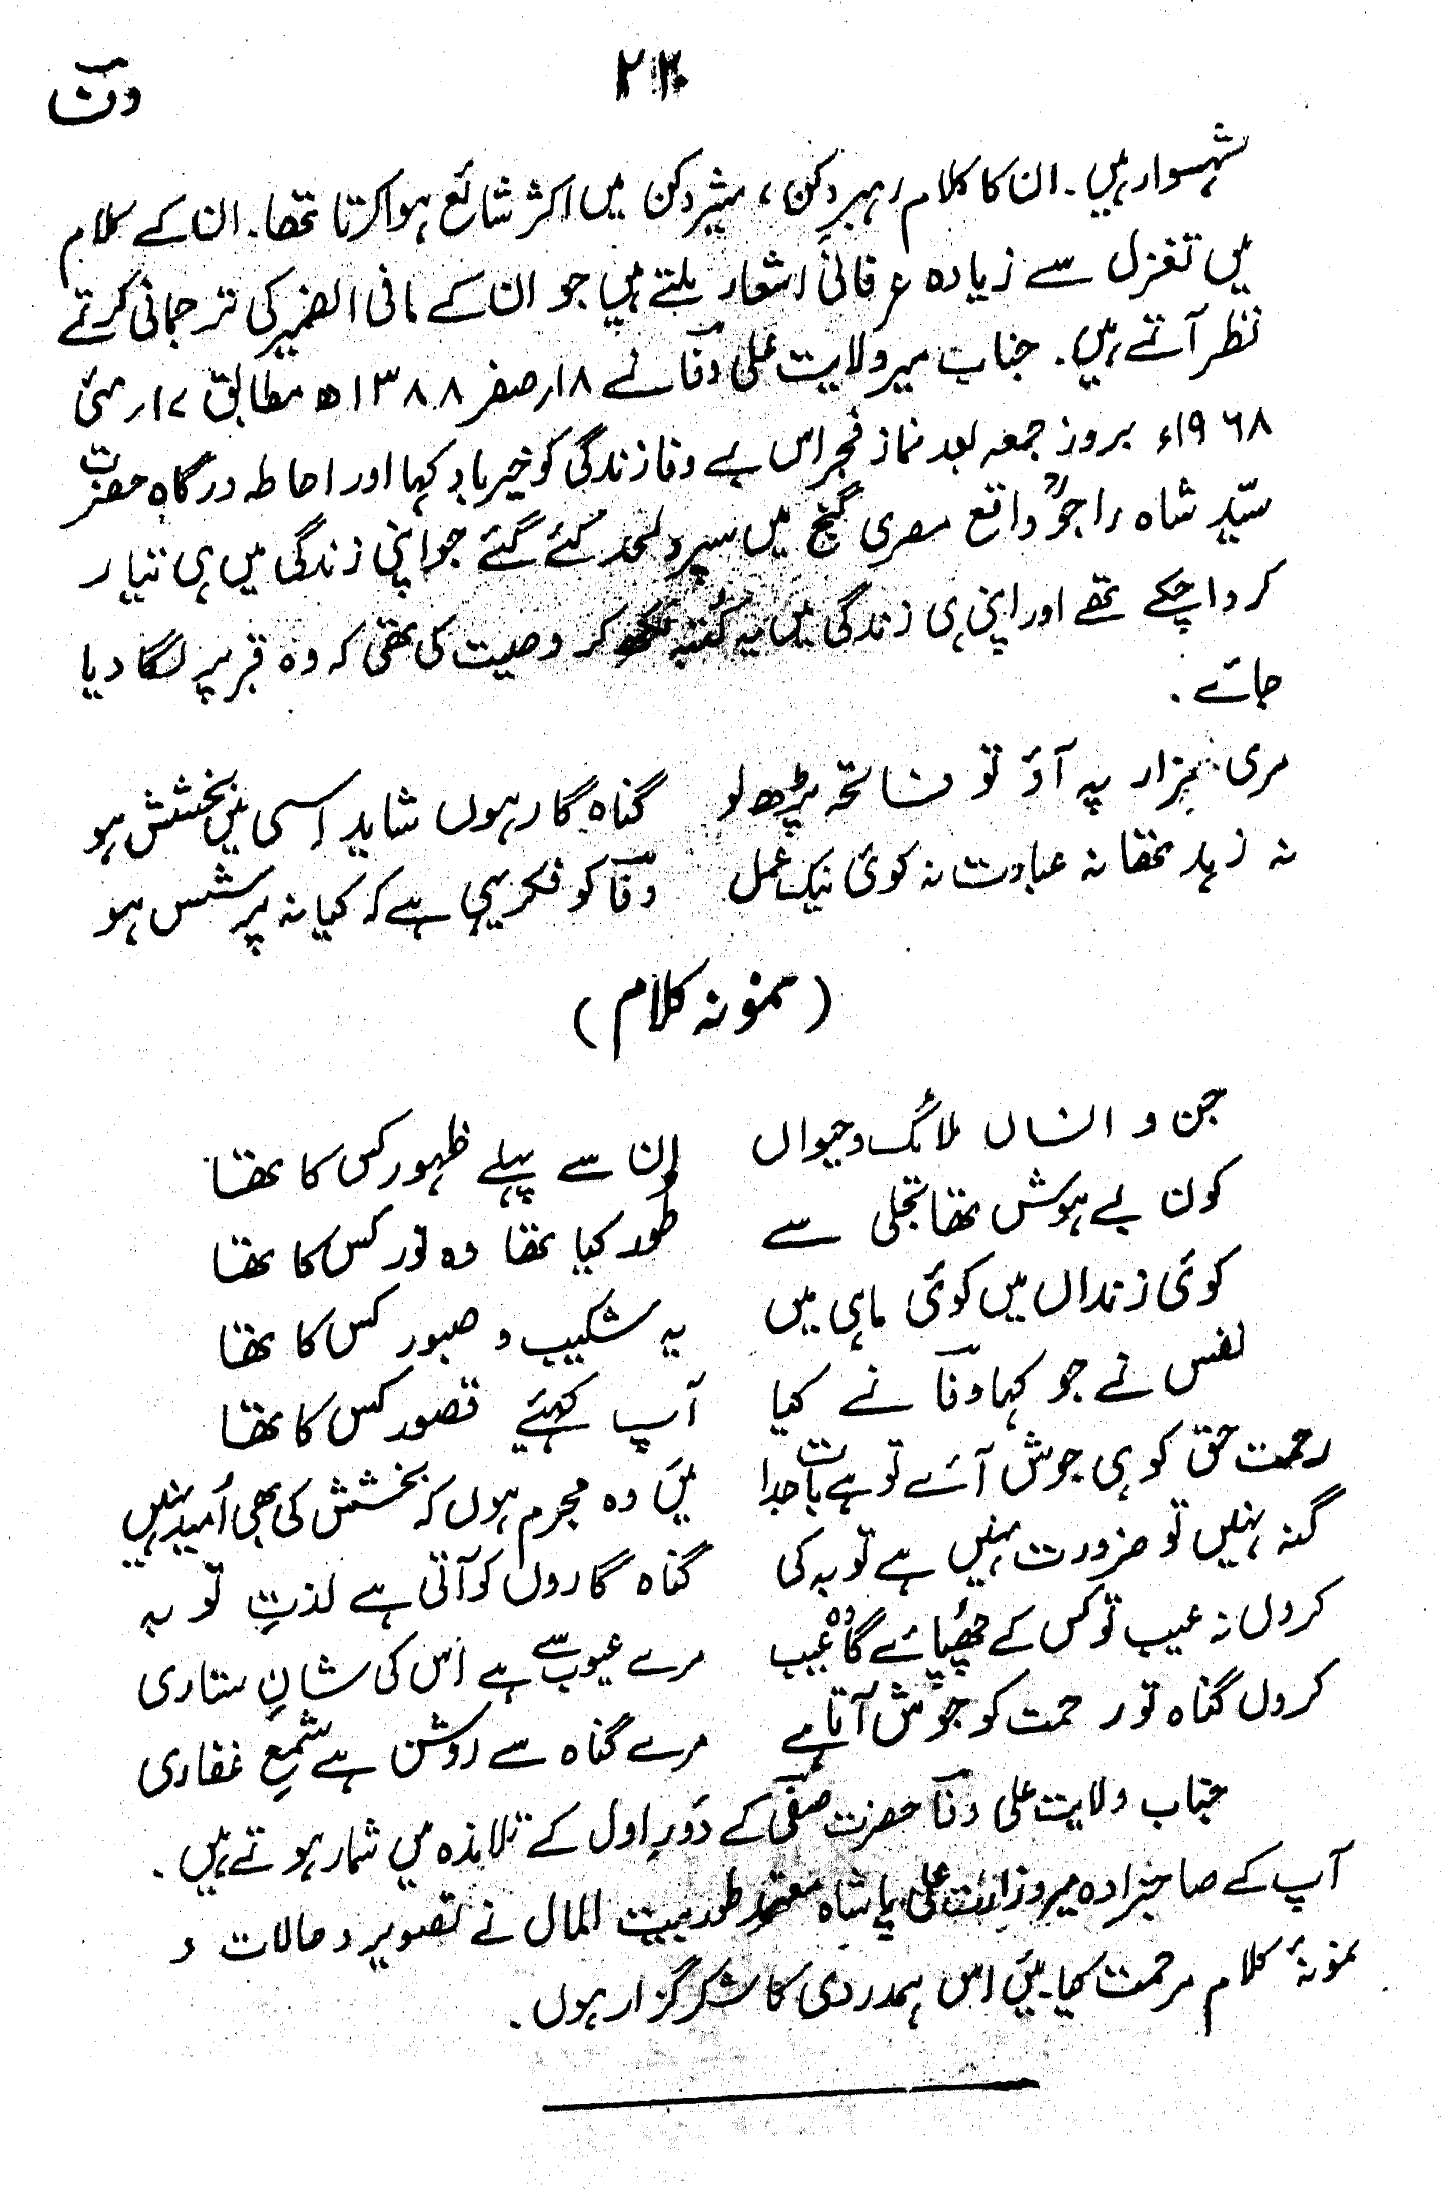 وفا
شہسوار ہیں۔ ان کا کلام رہبر دکن، مشیر دکن میں اکثر شائع ہوا کرتا تھا۔ ان کے کلام
میں تغزل سے زیادہ عرفانی اشعار ملتے ہیں جو ان کے مافی الضمیر کی ترجمانی کرتے
نظر آتے ہیں۔ جناب میر ولایت علی وفاؔ نے ۱۸ر صفر ۱۳۸۸ھ مطابق ۱۷ر مئی
۱۹۶۸ء بروز جمعہ بعد نماز فجر اس بے وفا زندگی کو خیرباد کہا اور احاطہ درگاہ حضرت
سیّد شاہ راجوؒ واقع مصری گنج میں سپرد لحد کئے گئے جو اپنی زندگی میں ہی تیار
کرواچکے تھے اور اپنی ہی زندگی میں یہ کُتبہ لکھ کر وصیت کی تھی کہ وہ قبر پر لگا دیا
جائے۔
مری مزار پہ آؤ تو فاتحہ پڑھ لو گناہ گار ہوں شاید اِسی میں بخشش ہو
نہ زہد تھا نہ عبادت نہ کوئی نیک عمل وفاؔ کو فکر یہی ہے کہ کیا نہ پرسش ہو
(نمونہ کلام)
جن و انساں ملائک و حیواں اِن سے پہلے ظہور کس کا تھا
کون بے ہوش تھا تجلی سے طور کیا تھا وہ نور کس کا تھا
کوئی زنداں میں کوئی ماہی میں یہ شکیب و صبور کس کا تھا
نفس نے جو کہا وفاؔ نے کیا آپ کہئیے قصور کس کا تھا
رحمت حق کو ہی جوش آئے تو ہے بات جدا میں وہ مجرم ہوں کہ بخشش کی بھی اُمید نہیں
گنہ نہیں تو ضرورت نہیں ہے توبہ کی گناہ گاروں کو آتی ہے لذتِ توبہ
کروں نہ عیب تو کس کے چھُپائے گا وہ عیب مرے عیوب سے ہے اُس کی شانِ ستاری
کروں گناہ تو رحمت کو جوش آتا ہے مرے گناہ سے روشن ہے شمعِ غفاری
جناب ولایت علی وفاؔ حضرت صفیؔ کے دَورِ اول کے تلامذہ میں شمار ہوتے ہیں۔
آپ کے صاحبزادہ میر وزارت علی پاشاہ معتمد طور بیت المال نے تصویر و حالات و
نمونۂ کلام مرحمت کیا۔ میں اس ہمدردی کا شکر گزار ہوں۔